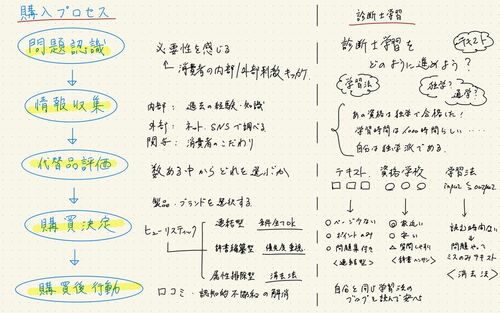 購入プロセス
問題認識
必要性を感じる
消費者の内部/外部刺激 キッカケ
情報収集
内部: 過去の経験・知識
外部: ネット、SNSで調べる
関与: 消費者のこだわり
代替品評価
数ある中からどれを選ぶか
購買決定
製品・ブランドを選択する
ヒューリスティック
連結型 全件全てOK
辞書編纂型 優先度重視
属性排除型 消去法
購買後行動
口コミ・認知的不協和の解消
診断士学習
診断士学習を
どのように進めよう?
テキスト
学習法
独学?
通学?
あの資格は独学で合格した!
学習時間は1000時間らしい・・・・
自分は独学派である。
テキスト 資格学校 学習法
input output
ページ少ない
ポイントのみ
問題集付き
<連結型>
家近い
安い
質問しやすい
<辞書ヘンサン>
読む時間ない
問題やって
ミスのみテキスト
<消去法>
自分と同じ学習法の
ブログを読んで安心